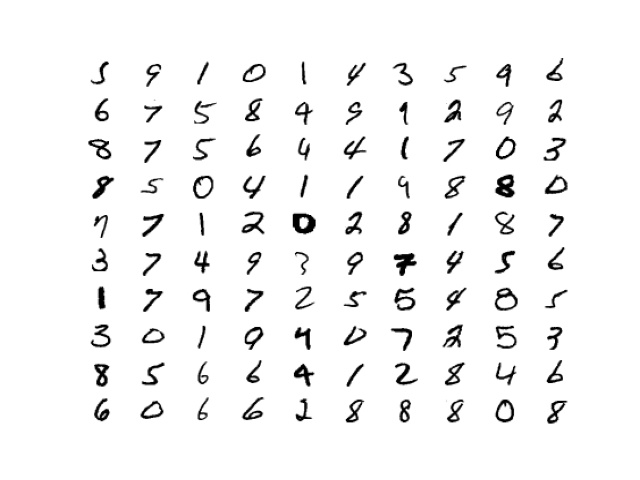 5 9 1 0 1 4 3 5 9 6
6 7 5 8 4 9 1 2 9 2
8 7 5 6 4 4 1 7 0 3
8 5 0 4 1 1 9 8 8 0
7 7 1 2 0 2 8 1 8 7
3 7 4 9 3 9 7 4 5 6
1 7 9 7 2 5 5 4 8 5
3 0 1 9 4 0 7 2 5 3
8 5 6 6 4 1 2 8 4 6
6 0 6 6 2 8 8 8 0 8